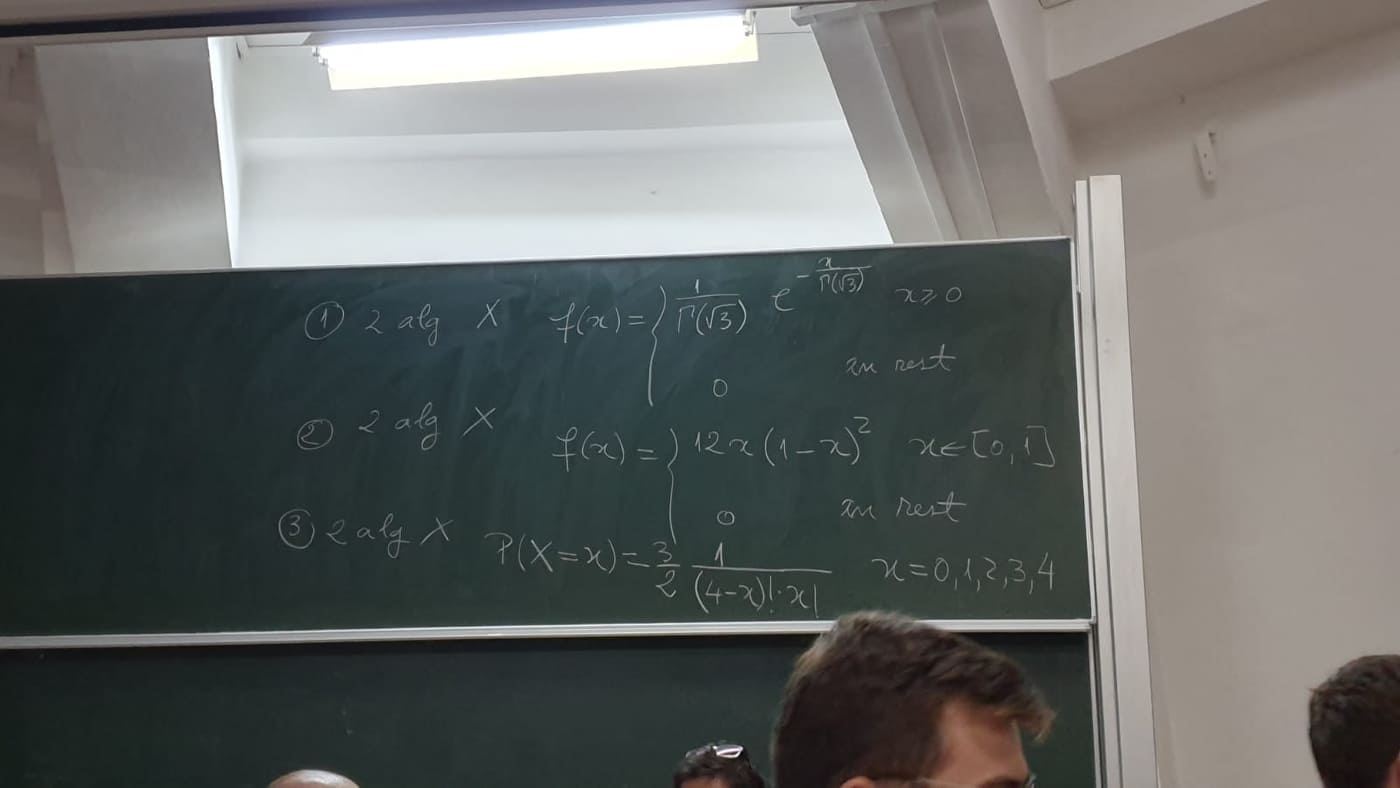 ① 2 alg X f(x) = { 1/Γ(√3) e^(-x/Γ(√3)) x ⩾ 0
0 în rest
② 2 alg X f(x) = { 12x(1-x)² x∈[0,1]
0 în rest
③ 2 alg X P(X=x) = 3/2 1/((4-x)!·x!) x=0,1,2,3,4